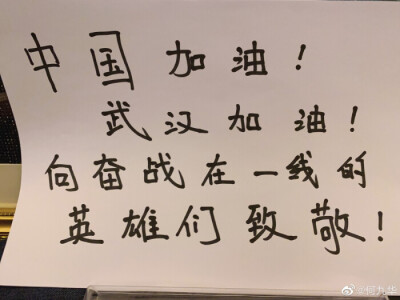 中国加油!
武汉加油!
向奋战在一线的
英雄们致敬!
@何九华